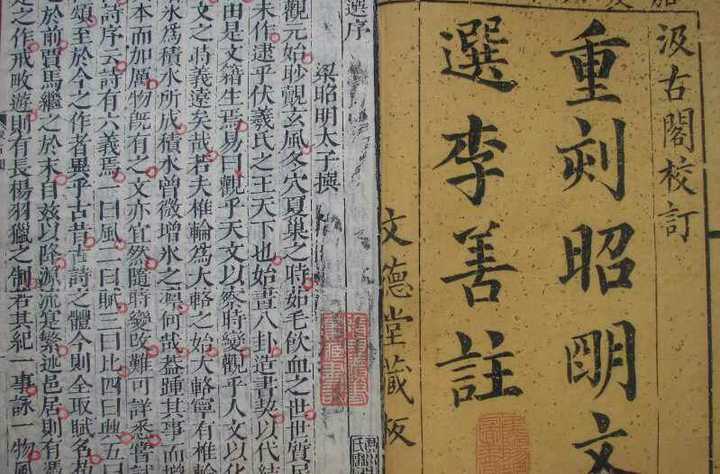 汲古閣校訂
重刻昭明文
選李善註
文德堂藏板
選序
梁昭明太子撰
觀元始眇覿玄風冬穴夏巢之時茹毛飲血之世世質民
未作逮乎伏羲氏之王天下也始畫八卦造書契以代結
由是文籍生焉易曰觀乎天文以察時變觀乎人文以化
文之時義遠矣哉若夫椎輪爲大輅之始大輅寧有椎輪
氷爲積水所成積水曾微增氷之凜何哉蓋踵其事而增
本而加厲物既有之文亦宜然隨時變改難可詳悉嘗試
詩序云詩有六義焉一曰風二曰賦三曰比四曰興五曰
頌至於今之作者異乎古昔古詩之體今則全取賦名荀
之於前賈馬繼之於末自茲以降源流寔繁述邑居則有憑
之作戒畋遊則有長楊羽獵之制若其紀一事詠一物風